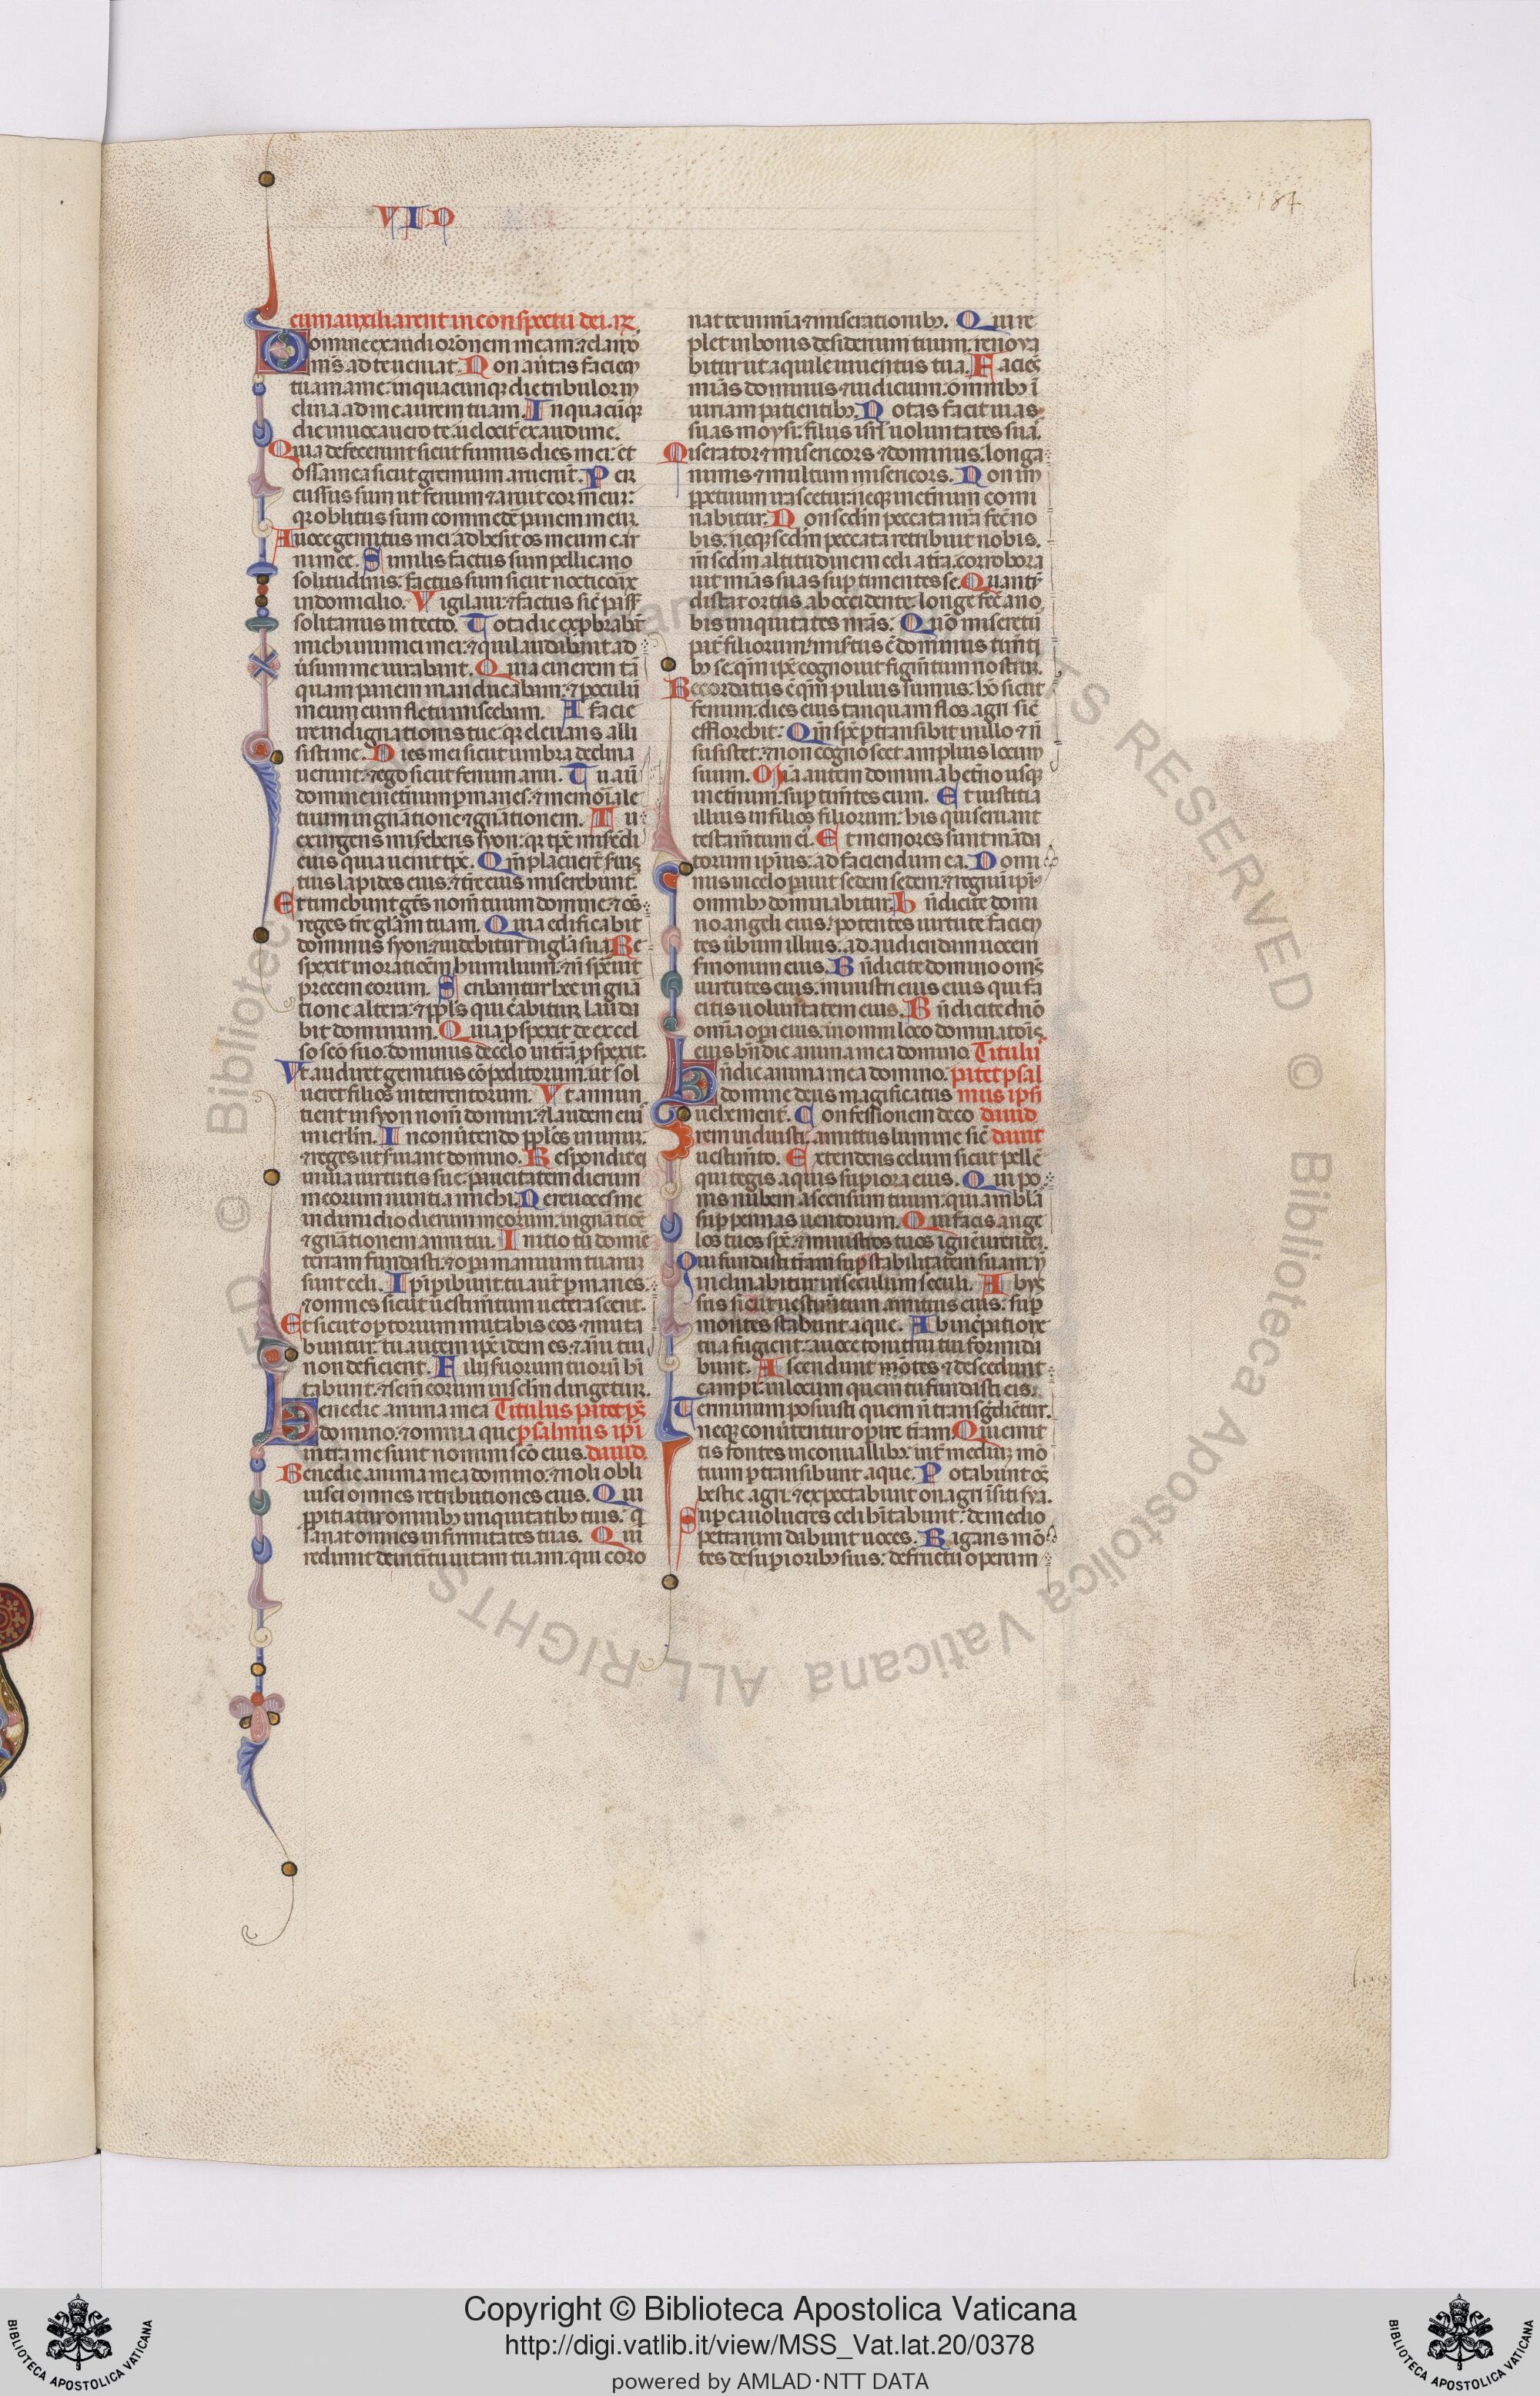 VID
187
cum auxiliarent in conspectu dei. 
Domine exaudi orōnem meam: ⁊ clamor
Non auertas faciem
tuam a me: in quacunq; die tribulor in
clina ad me aurem tuam. In quacūq;
die inuocauero te: uelocit̄ exaudi me.
Quia defecerunt sicut fumus dies mei: et
ossa mea sicut gremium aruerūt. Per
cussus sum ut fenum ⁊ aruit cor meum:
qr oblitus sum comedē panem meum.
A uoce gemitus mei: adhesit os meum car
ni mee. Similis factus sum pellicano
solitudinis: factus sum sicut
in domicilio. Vigilaui: ⁊ factus
solitarius in tecto. Tota die
michi inimici mei: ⁊ qui laudabant ad
Quia cinerem tā
quam panem manducabam: ⁊ poculū
meum cum fletu miscebam. A facie
ire indignationis tue: qr eleuans alli
sisti me. Dies mei sicut umbra declina
uerunt: ⁊ ego sicut fenum arui. Tu aū
domine in et̄num permanes: ⁊ memoriale
tuum in gnātione ⁊ gnātionem. Tu
exurgens misereberis syon:
eius quia uenit tp̄s. Qm̄ placuerūt
tuis lapides eius: ⁊ t̄re eius miserebunt̄.
Et timebunt gn̄tes nom̄ tuum domine: ⁊ oēs
reges t̄re glām tuam. Quia edificabit
dominus syon: ⁊ uidebitur in glā sua. Re
spexit in orationem humilium: ⁊ n̄ spreuit
precem eorum. Scribantur hec in gnā
tione altera: ⁊ ppl̄s qui creabitur laudā
bit dominum. Quia pspexit de excel
so scō suo: dominus de celo in trā pspexit.
Vt audiret gemitus cōpeditorum: ut sol
ueret filios interemtorum. Vt annun
tient in syon nom̄ domini: ⁊ laudem eius
in ierlm̄. In conueniendo ppl̄os in unum:
⁊ reges ut seruiant domino. Respondit ei
in uia uirtutis sue: paucitatem dierum
meorum nuntia michi. Ne reuoces me
in dimidio dierum meorum: in gnātionē
⁊ gnātionem anni tui. Initio tu domine
terram fundasti: ⁊ opera manuum tuarum
sunt celi. Ipī peribunt tu aut̄ permanes:
⁊ omnes sicut uestim̄tum ueterascent.
Et sicut opertorium mutabis eos ⁊ muta
buntur: tu autem ipē idem es ⁊ anni tui
non deficient. Filii suorum tuorū hī
tabunt: ⁊ sem̄ eorum in seclm̄ dirigetur.
Benedic anima mea Titulus patet ps
domino: ⁊ omnia que psalmus ipi
intra me sunt nomini scō eius. dauid.
Benedic anima mea domino: ⁊ noli obli
uisci omnes retributiones eius. Qui
ppitiatur omnibus iniquitatibus tuis: q
sanat omnes infirmitates tuas. Qui
redimit de int̄itu uitam tuam: qui coro
nat te in mīa ⁊ miserationibus. Qui re
plet in bonis desiderium tuum: renoua
bitur ut aquile iuuentus tua. Faciens
mīas dominus: ⁊ iudicium omnibus ī
iuriam patientibus. Notas fecit uias
suas moysi: filiis isrl̄ uoluntates suas.
Miserator ⁊ misericors dominus: longa
nimis ⁊ multum misericors. Non in
ppetuum irascetur: neq; in et̄num comi
nabitur. Non sedm̄ peccata nrā fecit no
bis: neq; sedm̄ peccata retribuit nobis.
altitudinem celi a t̄ra: corrobora
uit mīas suas sup timentes se. Quantum
distat ortus ab occidente: longe fecit a no
bis iniquitates nrās. Quō miseretur
pat̄ filiorum: misertus ē dominus timēti
bus se: qm̄ ipē cognouit figm̄tum nostrum.
Recordatus ē qm̄ puluis sumus: hō sicut
fenum: dies eius tanquam flos agri sic̄
efflorebit. Qm̄ spē ptransibit in illo ⁊ n̄
subsistet: ⁊ non cognoscet amplius locum
suum. Mīa autem domini ab et̄no usq;
in et̄num: sup tim̄tes eum. Et iustitia
illius in filios filiorum: his qui seruant
testam̄tum ei. Et memores sunt mādā
torum ipius: ad faciendum ea. Domi
nus in celo parauit sedem sedem: ⁊ regnū ipī
omnibus dominabitur. Bn̄dicite domi
no angeli eius: potentes uirtute facien
tes ūbum illius: ad audiendam uocem
sermonum eius. Bn̄dicite domino oms̄
uirtutes eius: ministri eius eius qui fa
citis uoluntatem eius. Bn̄dicite dnō
omīa opera eius: in omni loco dominatōis
eius bn̄dic anima mea domino. Titulus
Bn̄dic anima mea domino: patet psal
domine deus magnificatus mus ipsi
uehementer. Confessionem ⁊ deco dauid
rem induisti: amictus lumine sic̄ dauit
uestim̄to. Extendens celum sicut pellē
qui tegis aquis supiora eius. Qui po
nis nubem ascensum tuum: qui ambula
sup pennas uentorum. Qui facis ange
los tuos spē: ⁊ ministros tuos ignē urentem.
Qui fundasti t̄ram sup stabilitatem suam: n̄
inclinabitur in seculum seculi. Abys
sus sicut uestim̄tum amictus eius: sup
montes stabunt aque. Ab increpatione
tua fugient: a uoce tonitrui tui formida
bunt. Ascendunt mōtes ⁊ descēdunt
campi: in locum quem tu fundasti eis.
Terminum posuisti quem n̄ transgredientur:
neq; conuertentur operire t̄ram. Qui emit
tis fontes in conuallibus: int̄ medium mō
tium ptransibunt aque. Potabunt oēs
bestie agri: ⁊ expectabunt onagri ī siti sua.
Sup ea uolucres celi hītabunt: de medio
petrarum dabunt uoces. Rigans mō
tes de supioribus suis: de fructu operum
© Biblioteca Apostolica Vaticana ALL RIGHTS RESERVED
Copyright © Biblioteca Apostolica Vaticana
http://digi.vatlib.it/view/MSS_Vat.lat.20/0378
powered by AMLAD·NTT DATA
BIBLIOTECA APOSTOLICA VATICANA
BIBLIOTECA APOSTOLICA VATICANA